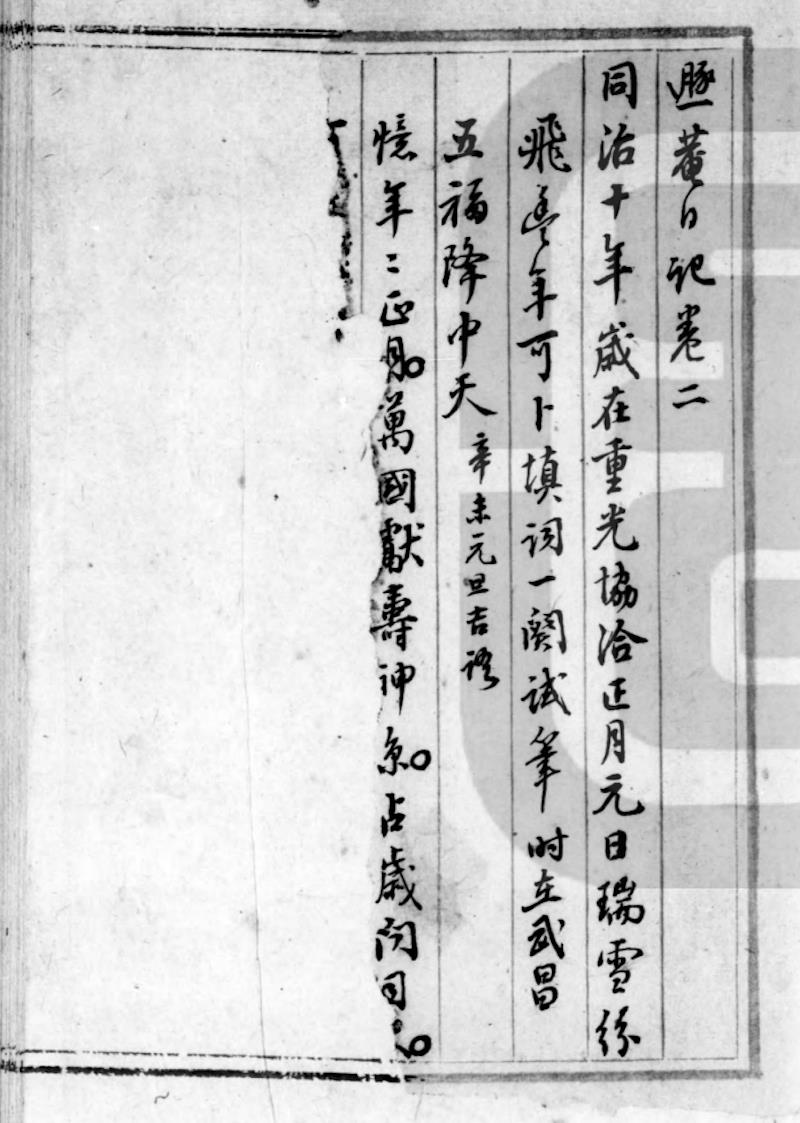 遯菴日記卷二
同治十年歲在重光協洽正月元日瑞雪紛
飛豐年可卜填詞一闋試筆時在武昌
五福降中天辛未元旦吉語
憶年二正月萬國獻壽神京占歲問